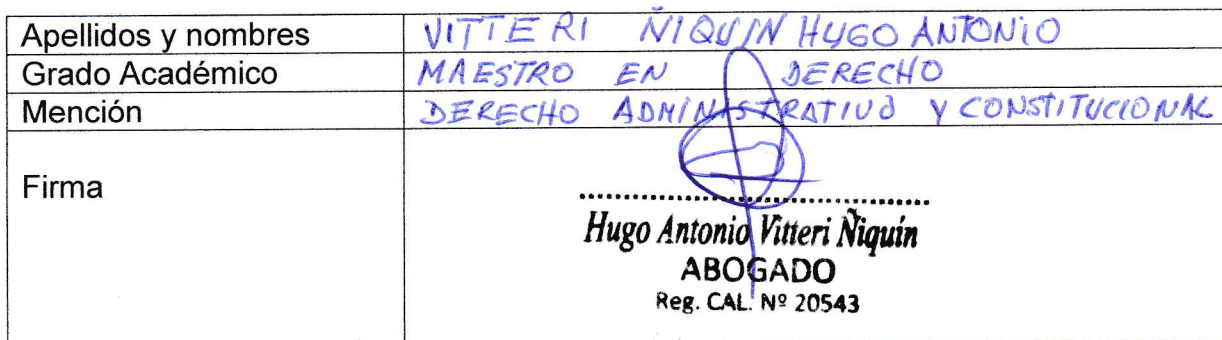 Apellidos y nombres VITTERI ÑIQUIN HUGO ANTONIO
Grado Académico MAESTRO EN DERECHO
Mención DERECHO ADMINISTRATIVO Y CONSTITUCIONAL
Firma
Hugo Antonio Vitteri Ñiquín
ABOGADO
Reg. CAL. Nº 20543